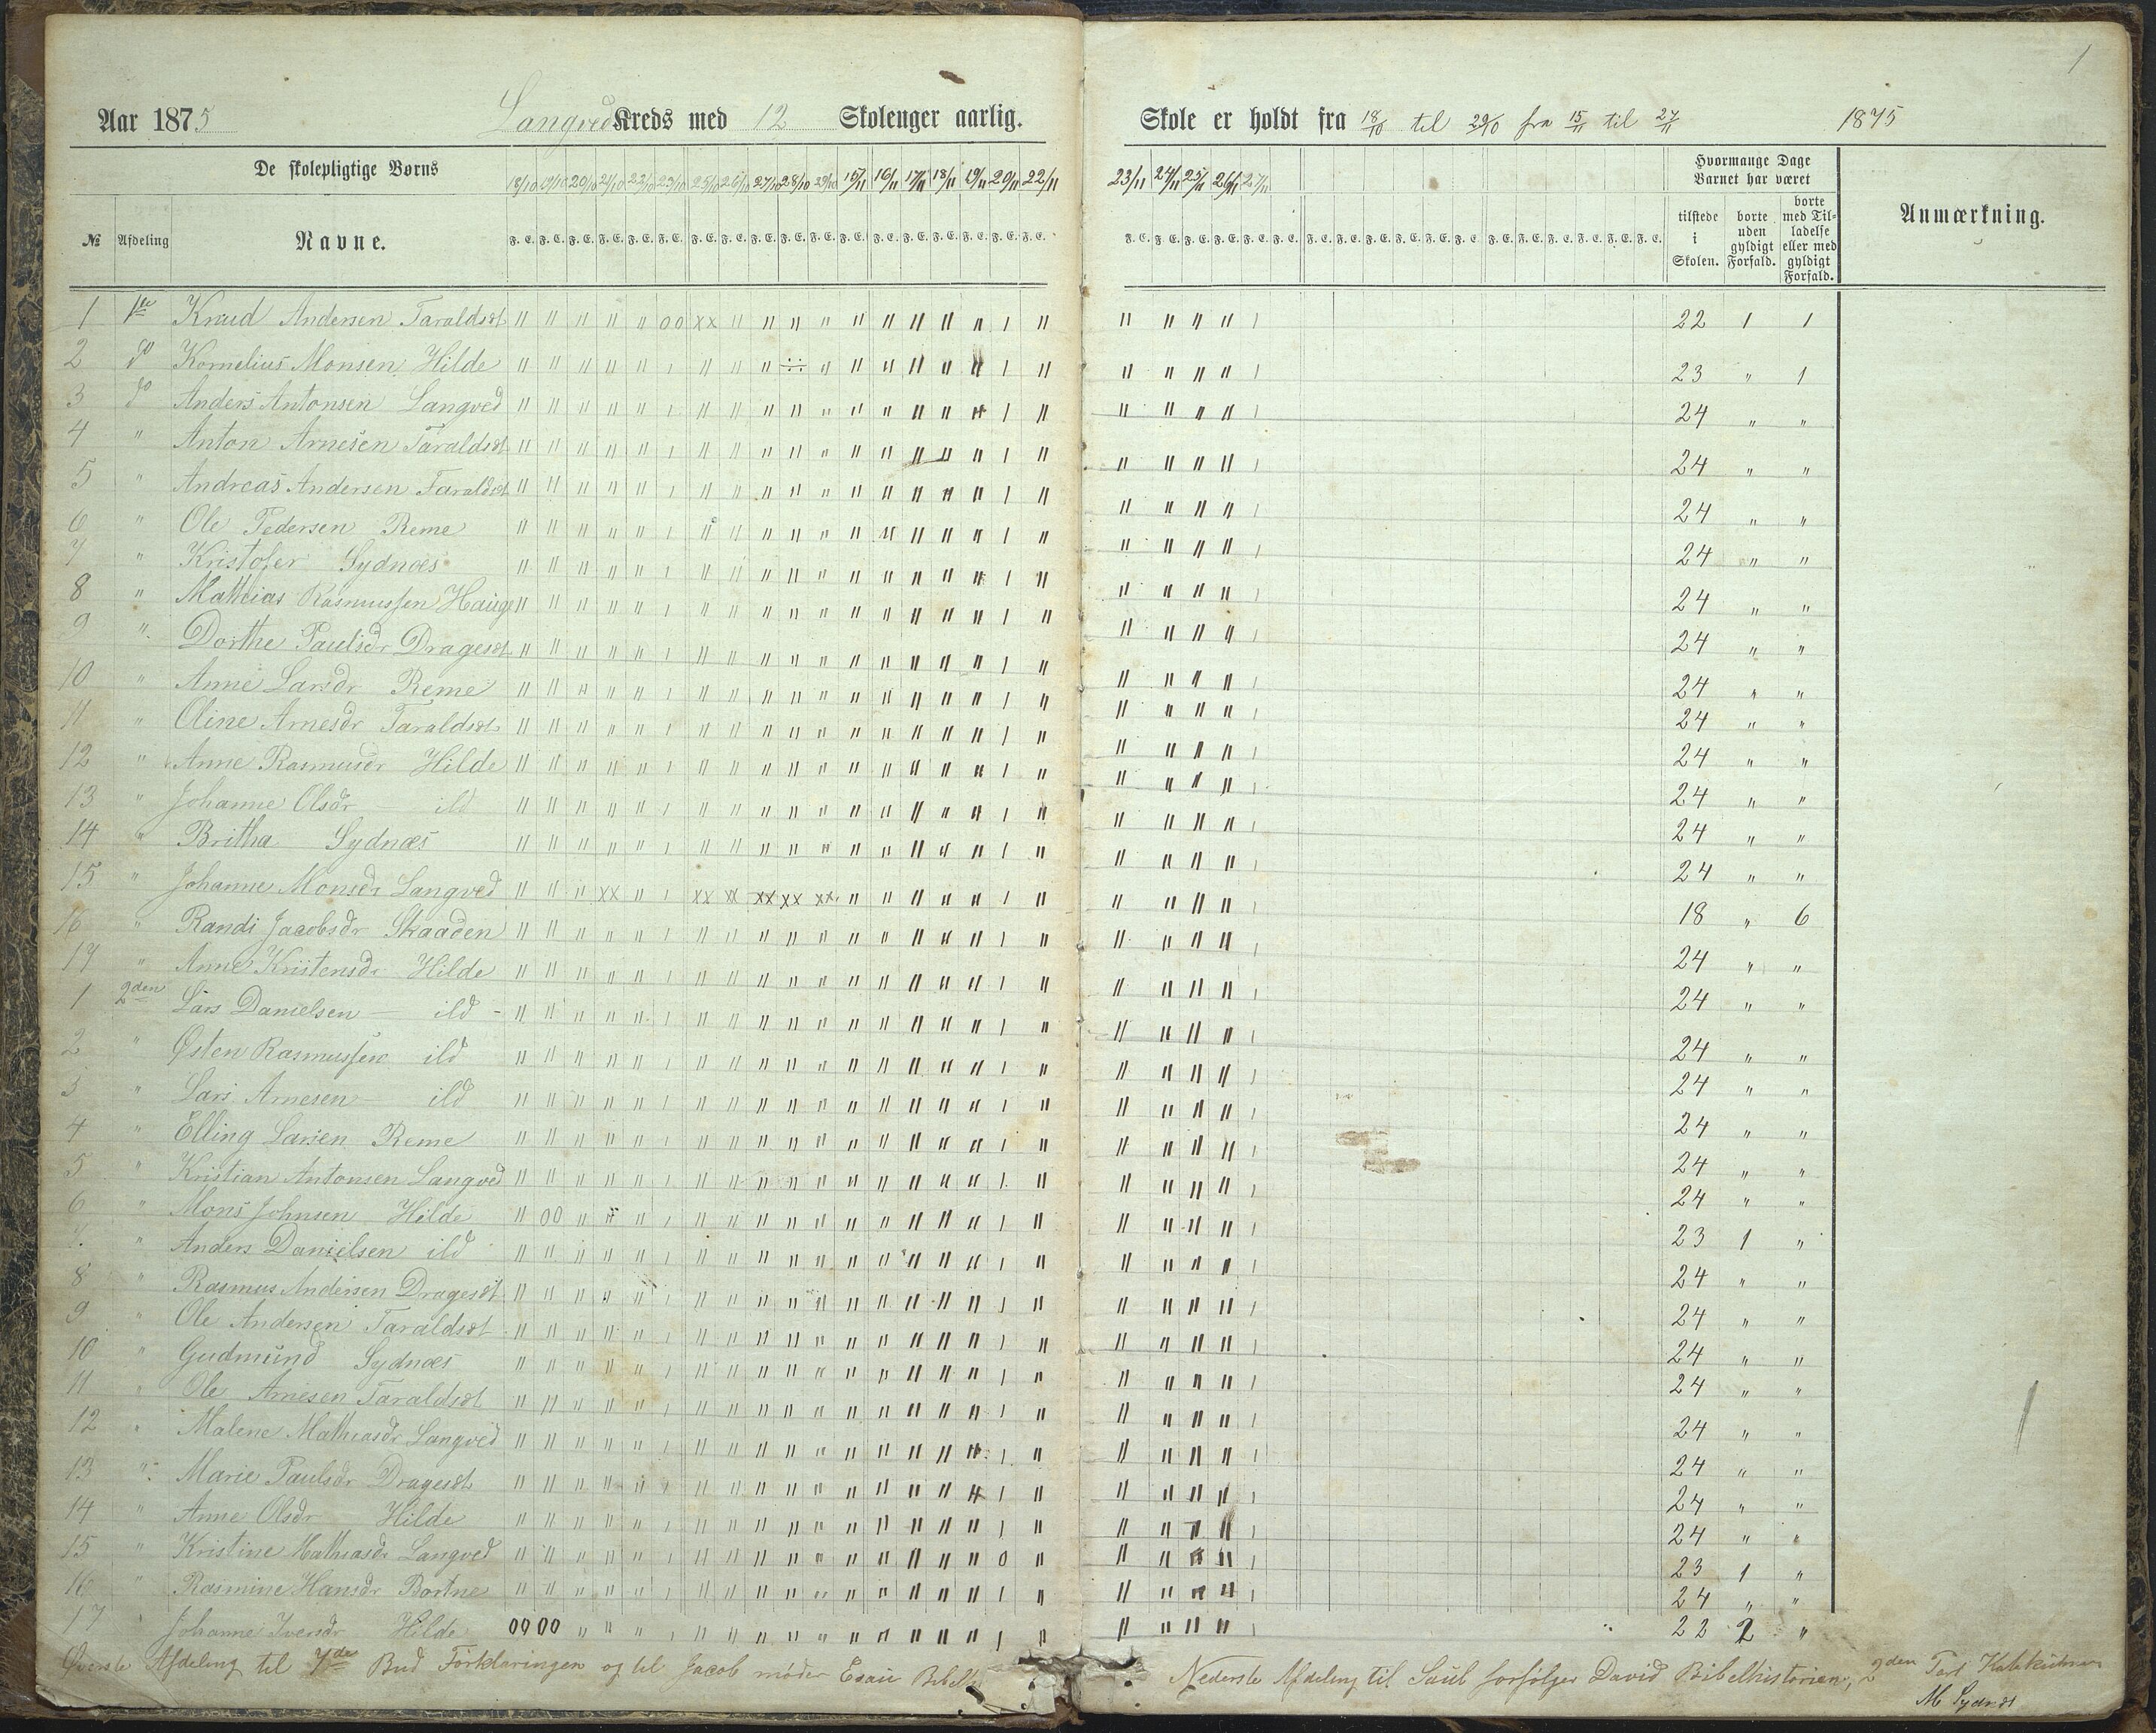 1
Aar 1875 Langved Kreds med 12 Skolenger aarlig. Skole er holdt fra 18/10 til 29/10 fra 15/11 til 27/11 1875
De skolepligtige Børns 18/10 19/10 20/10 21/10 22/10 23/10 25/10 26/10 27/10 28/10 29/10 15/11 16/11 17/11 18/11 19/11 20/11 22/11 23/11 24/11 25/11 26/11 27/11 Hvormange Dage Barnet har været Anmærkning.
№ Afdeling Navne. F. E. F. E. F. E. F. E. F. E. F. E. F. E. F. E. F. E. F. E. F. E. F. E. F. E. F. E. F. E. F. E. F. E. F. E. tilstede i Skolen. borte uden gyldigt Forfald. borte med Tilladelse eller med gyldigt Forfald.
1 1ste Knud Andersen Taraldset 22 1 1
2 do Kornelius Monsen Hilde 23 " 1
3 do Anders Antonsen Langved 24 " "
4 " Anton Arnesen Taraldset 24 " "
5 " Andreas Andersen Taraldset 24 " "
6 " Ole Pedersen Reme 24 " "
7 " Kristofer Sydnæs 24 " "
8 " Mathias Rasmussen Hauge 24 " "
9 " Dorthe Paulsdr Drageset 24 " "
10 " Anne Larsdr Reme 24 " "
11 " Oline Arnesdr Taraldset 24 " "
12 " Anne Rasmusdr Hilde 24 " "
13 " Johanne Olsdr ild 24 " "
14 " Britha Sydnæs 24 " "
15 " Johanne Monsdr Langved 18 " 6
16 " Randi Jacobsdr Skaaden 24 " "
17 " Anne Kristensdr Hilde 24 " "
1 2den Lars Danielsen — ild - 24 " "
2 " Østen Rasmussen ild 24 " "
3 " Lars Arnesen — ild 24 " "
4 " Elling Larsen Reme 24 " "
5 " Kristian Antonsen Langved 24 " "
6 " Mons Johnsen Hilde 23 1 "
7 " Anders Danielsen ild 24 " "
8 " Rasmus Andersen Drageset 24 " "
9 " Ole Andersen Taraldset 24 " "
10 " Gudmund Sydnæs 24 " "
11 " Ole Arnesen Taraldset 24 " "
12 " Malene Mathiasdr Langved 24 " "
13 " Marie Paulsdr Drageset 24 " "
14 " Anne Olsdr Hilde 24 " "
15 " Kristine Mathiasdr Langved 23 1 "
16 " Rasmine Hansdr Bortne 24 " "
17 " Johanne Iversdr Hilde 22 2 "
Øverste Afdeling til 7de Bud Forklaringen og til Jacob møder Esau Nederste Afdeling til Saul forfølger David Bibelhistorien, 2den Part
M Sydnæs